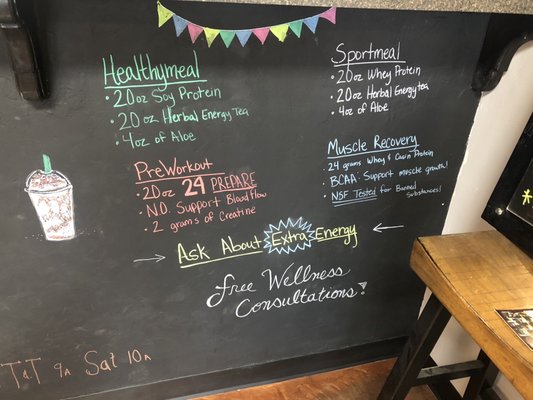 Healthymeal
• 20oz Soy Protein
• 20oz Herbal Energy Tea
• 4oz of Aloe
PreWorkout
• 20oz 24 PREPARE
• N.O. Support Blood Flow
• 2 grams of Creatine
Sportmeal
• 20oz Whey Protein
• 20oz Herbal Energy tea
• 4oz of Aloe
Muscle Recovery
• 24 grams Whey & Protein
• BCAA: Support muscle growth!
• NSF Tested for Banned
Substances!
Ask About Extra Energy
free Wellness
Consultations!
T&T 9A Sat 10A